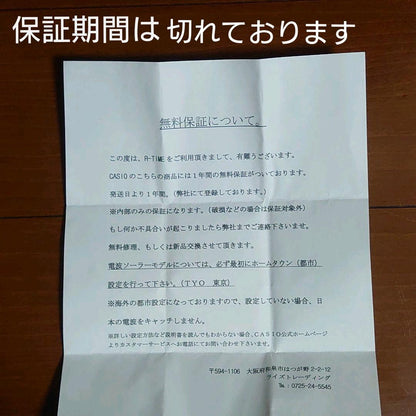 保証期間は 切れております
無料保証について。
この度は、R-TIMEをご利用頂きまして、有難うございます。
CASIOのこちらの商品には1年間の無料保証がついております。
発送日より1年間。(弊社にて登録しております。)
※内部のみの保証になります。(破損などの場合は保証対象外)
もし何か不具合が起こりましたら弊社までご連絡下さいませ。
無料修理、もしくは新品交換させて頂きます。
電波ソーラーモデルについては、必ず最初にホームタウン(都市)
設定を行って下さい。(TYO 東京)
※海外の都市設定になっておりますので、設定していない場合、日
本の電波をキャッチしません。
※詳しい設定方法など説明書を読んでもわからない場合、CASIO公式ホームページ
よりカスタマーサービスへお電話にてお問い合わせ下さいませ。
〒594-1106 大阪府和泉市はつが野2-2-12
ライズトレーディング
℡ 0725-24-5545